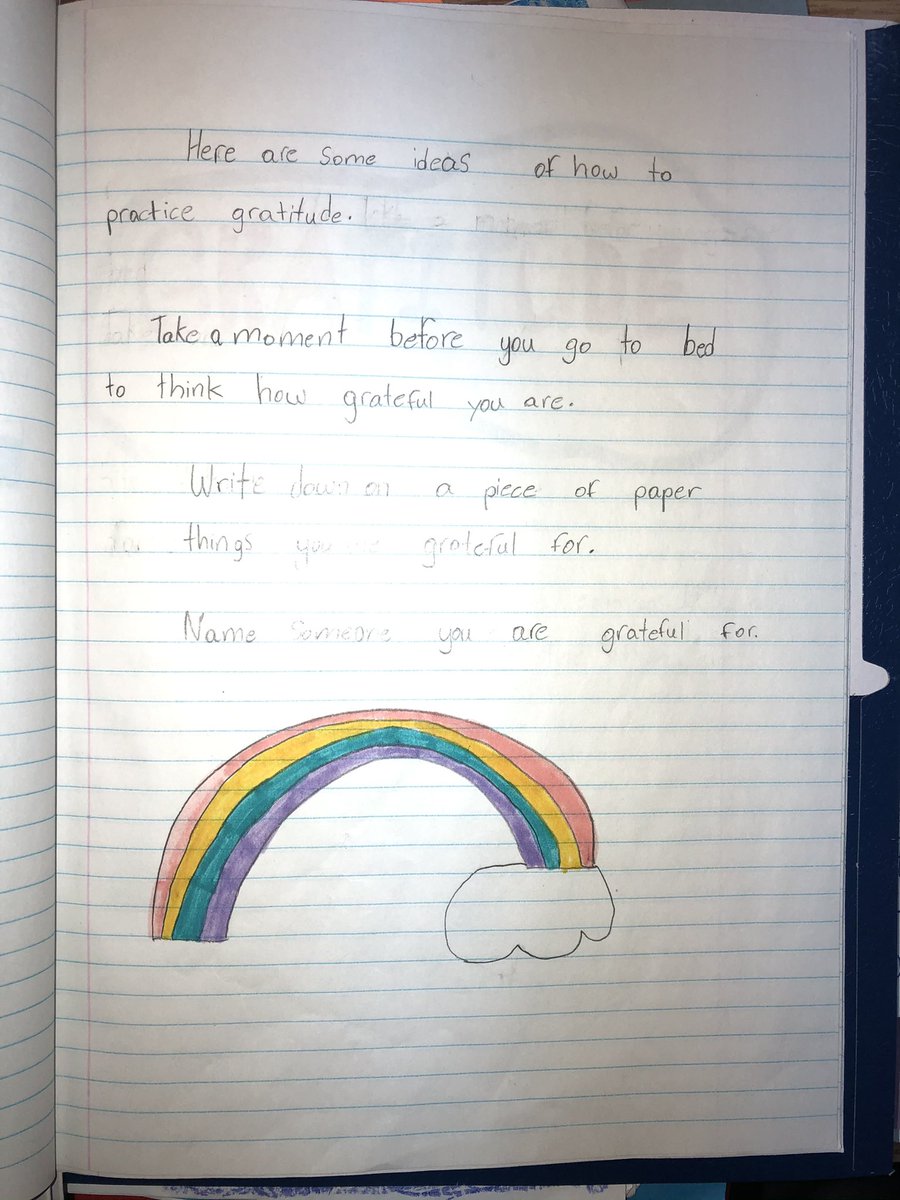 Here are some ideas of how to
practice gratitude.
Take a moment before you go to bed
to think how grateful you are.
Write down on a piece of paper
things you are grateful for.
Name someone you are grateful for.